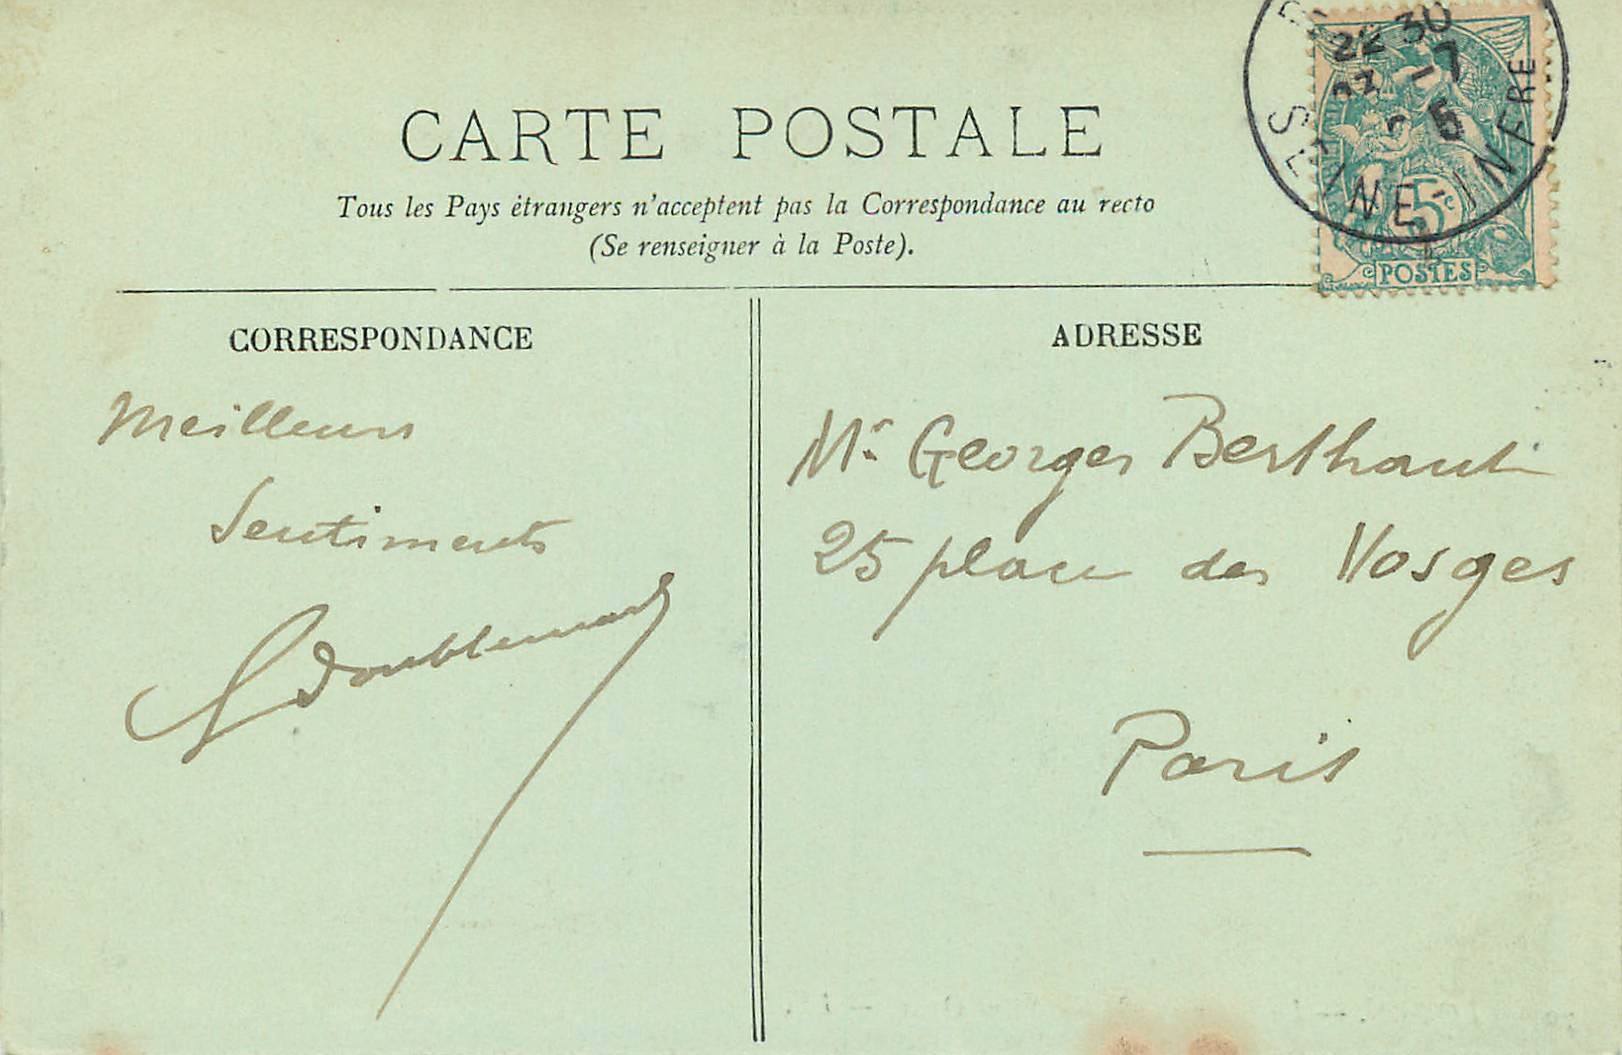 CARTE POSTALE
Tous les Pays étrangers n'acceptent pas la Correspondance au recto
(Se renseigner à la Poste).
CORRESPONDANCE
ADRESSE
Meilleurs
Sentiments
Mr Georges Berthaut
25 place des Vosges
Paris
22 30
-7
5
SEINE-INFRE
5c
POSTES